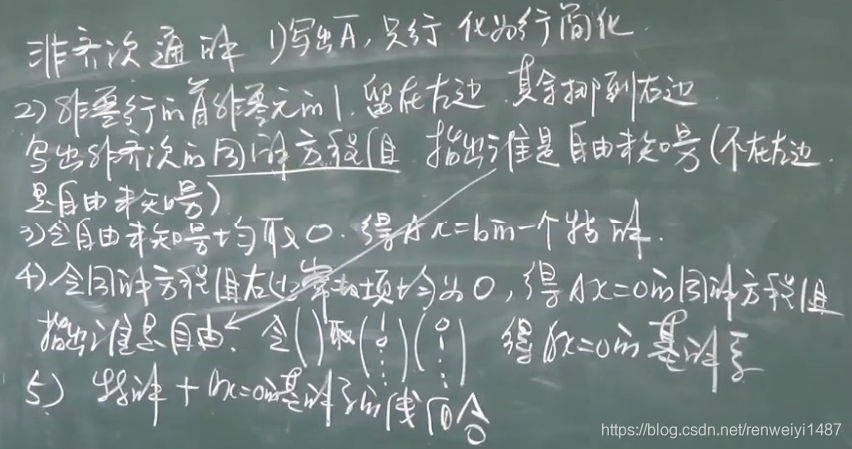 非齐次通解 1)写出A̅,只行 化为行简化.
2)非零行的首非零元的1.留在左边.其余挪到右边.
写出非齐次的同解方程组 指出谁是自由未知量(不在左边.
是自由未知量)
3)令自由未知量均取0.得Ax=b的一个特解.
4)令同解方程组右边常数项均为0,得Ax=0的同解方程组
指出谁是自由.令( )取(1 0 ⋮)(0 1 ⋮) 得Ax=0的基解系
5) 特解+Ax=0的基解系的线组合
https://blog.csdn.net/renweiyi1487